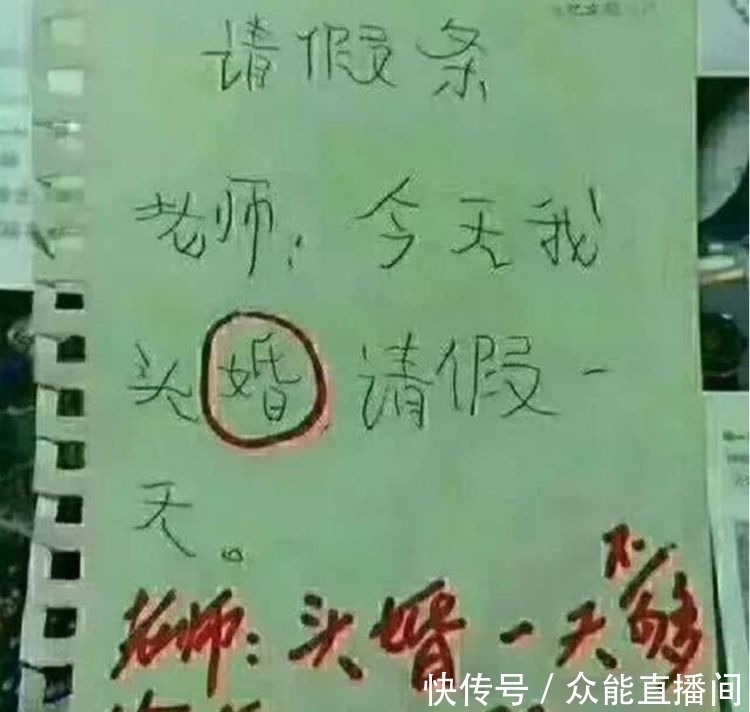 请假条
老师：今天我
头婚，请假一
天。
老师：头婚一天不够
快传号/众能直播间